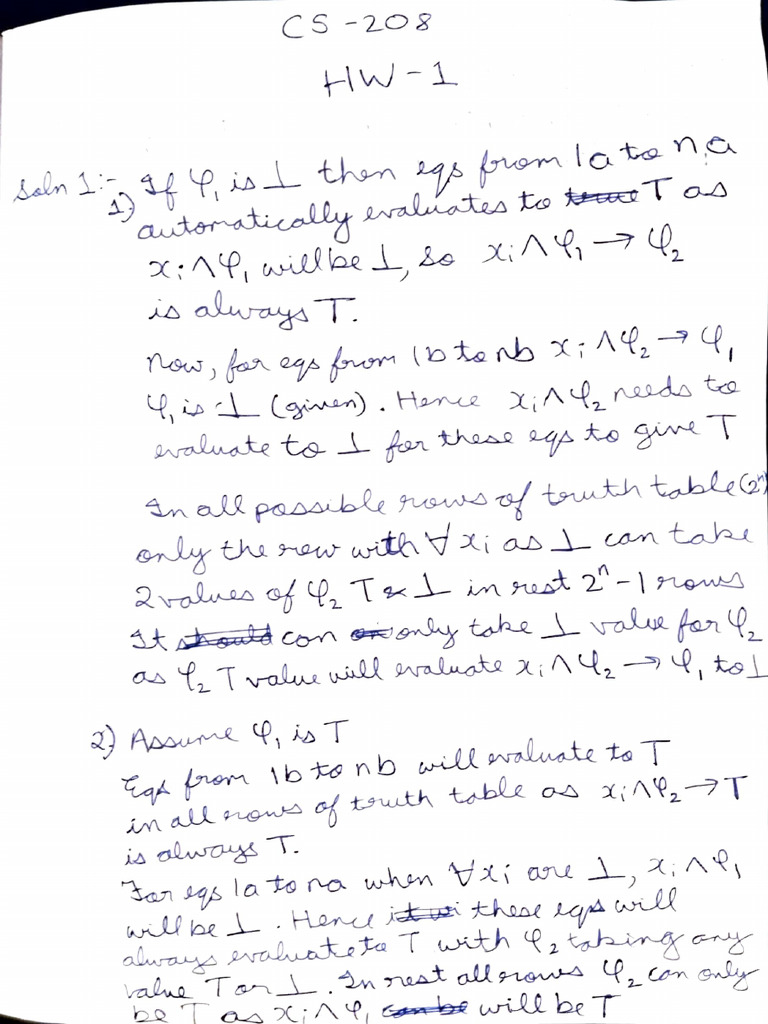 CS-208
HW-1
Soln 1:-
1) If φ₁ is ⊥ then eqs from 1a to n.a
automatically evaluates to T as
xᵢ ∧ φ₁ will be ⊥, so xᵢ ∧ φ₁ → φ₂
is always T.
Now, for eqs from 1b to nb xᵢ ∧ φ₂ → φ₁
φ₁ is ⊥ (given). Hence xᵢ ∧ φ₂ needs to
evaluate to ⊥ for these eqs to give T
In all possible rows of truth table (2ⁿ)
only the row with ∀ xᵢ as ⊥ can take
2 values of φ₂ T & ⊥ in rest 2ⁿ-1 rows
It can only take ⊥ value for φ₂
as φ₂ T value will evaluate xᵢ ∧ φ₂ → φ₁ to ⊥
2) Assume φ₁ is T
Eqs from 1b to nb will evaluate to T
in all rows of truth table as xᵢ ∧ φ₂ → T
is always T.
For eqs 1a to na when ∀xᵢ are ⊥, xᵢ ∧ φ₁
will be ⊥. Hence these eqs will
always evaluate to T with φ₂ taking any
value T or ⊥. In rest all rows φ₂ can only
be T as xᵢ ∧ φ₁ will be T